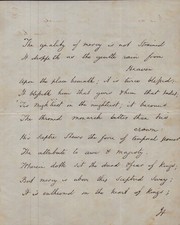 The quality of mercy is not strained
It droppeth as the gentle rain from
Heaven
Upon the place beneath; it is twice blessed:
It blesseth him that gives & him that takes,
'Tis mightiest in the mightiest, it becomes
The throned monarch better than his
crown
His Sceptre Shews the force of temporal power
The attribute to awe & majesty
Wherein doth sit the dread & fear of Kings,
But mercy is above this Sceptred Sway;
It is enthroned in the heart of Kings;
It